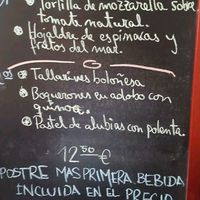 Tortilla de mozzarella sobre
tomate natural.
Hojaldre de espinacas y
frutos del mar.
Tallarines boloñesa
Boquerones en adobo con
quinoa.
Pastel de alubias con polenta.
12⁵⁰ €
POSTRE MAS PRIMERA BEBIDA
INCLUIDA EN EL PRECIO